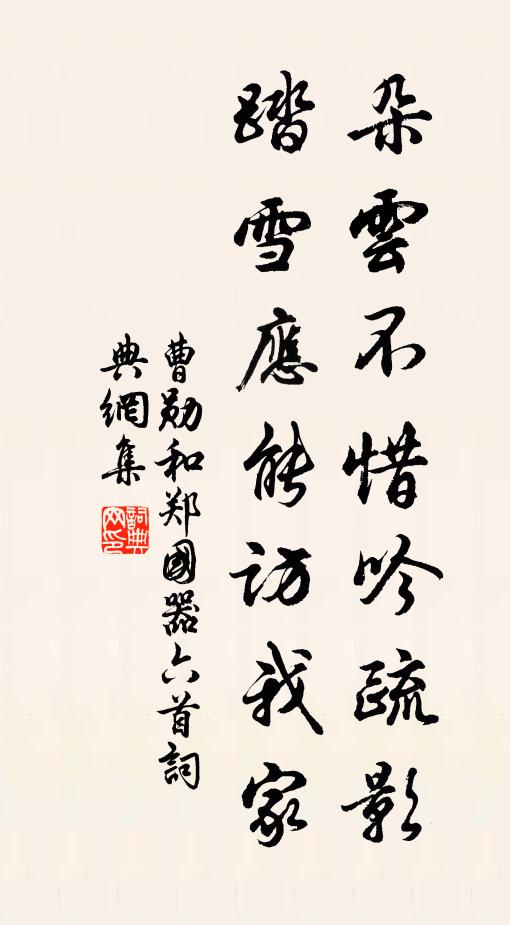 朵雲不惜吟疏影
踏雪應能訪我家
曹勛和郑國器六首詞
典網集
詞典網印